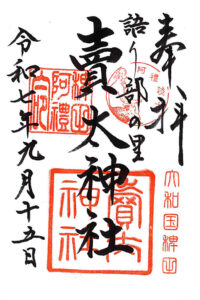 奉拝
語り部の里
賣太神社
令和七年九月十五日
大和国稗田
賣太
神社